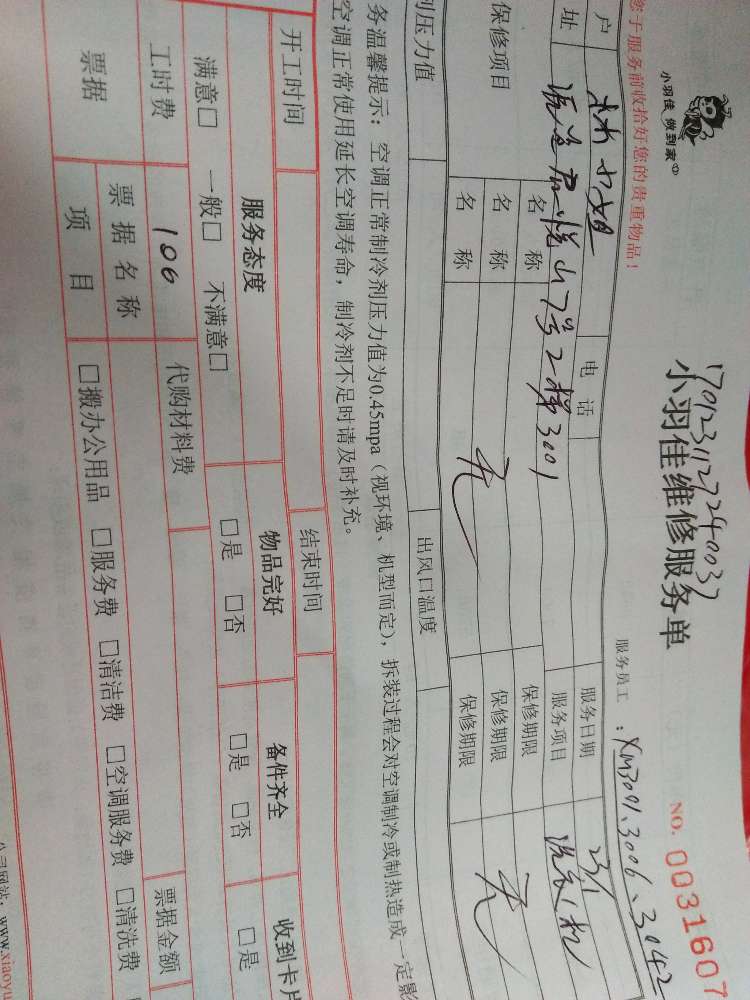 小羽佳 做到家
17012311272400037
小羽佳维修服务单
NO. 0031607
服务员工：XM3091、3006、3042
您于服务前收拾好您的贵重物品！
户 林小姐 电话 服务日期 23/1
址 7号2梯3001 服务项目 洗衣机
保修项目 名称 保修期限
名称 无 保修期限
名称 保修期限 无
剂压力值 出风口温度
务温馨提示：空调正常制冷剂压力值为0.45mpa（视环境、机型而定），拆装过程会对空调制冷或制热造成一定影
空调正常使用延长空调寿命，制冷剂不足时请及时补充。
开工时间 结束时间
服务态度 物品完好 备件齐全 收到卡片
满意□ 一般□ 不满意□ □是 □否 □是 □否 □是
工时费 100 代购材料费 票据金额
票据 票据名称
项目 □搬办公用品 □服务费 □清洁费 □空调服务费 □清洗费
公司网站：www.xiaoyu